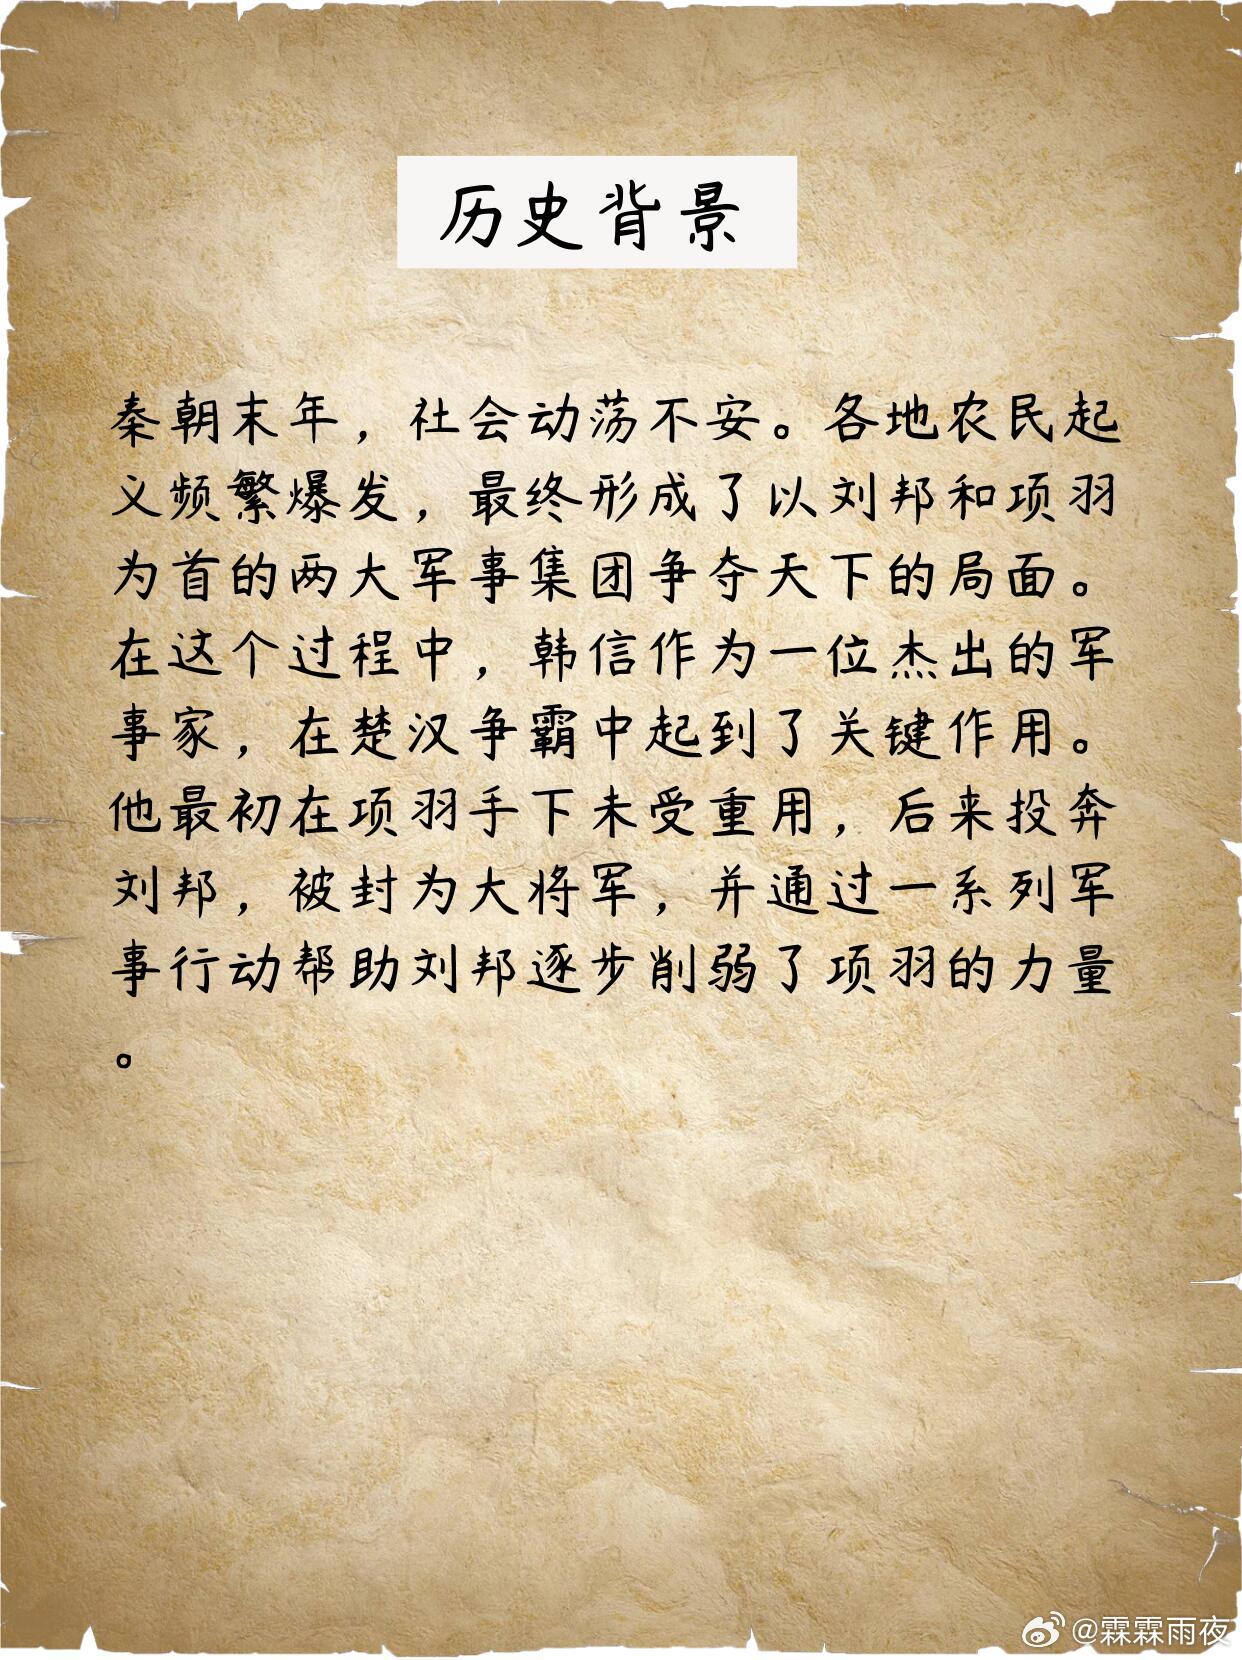 历史背景
秦朝末年，社会动荡不安。各地农民起
义频繁爆发，最终形成了以刘邦和项羽
为首的两大军事集团争夺天下的局面。
在这个过程中，韩信作为一位杰出的军
事家，在楚汉争霸中起到了关键作用。
他最初在项羽手下未受重用，后来投奔
刘邦，被封为大将军，并通过一系列军
事行动帮助刘邦逐步削弱了项羽的力量
。
@霖霖雨夜